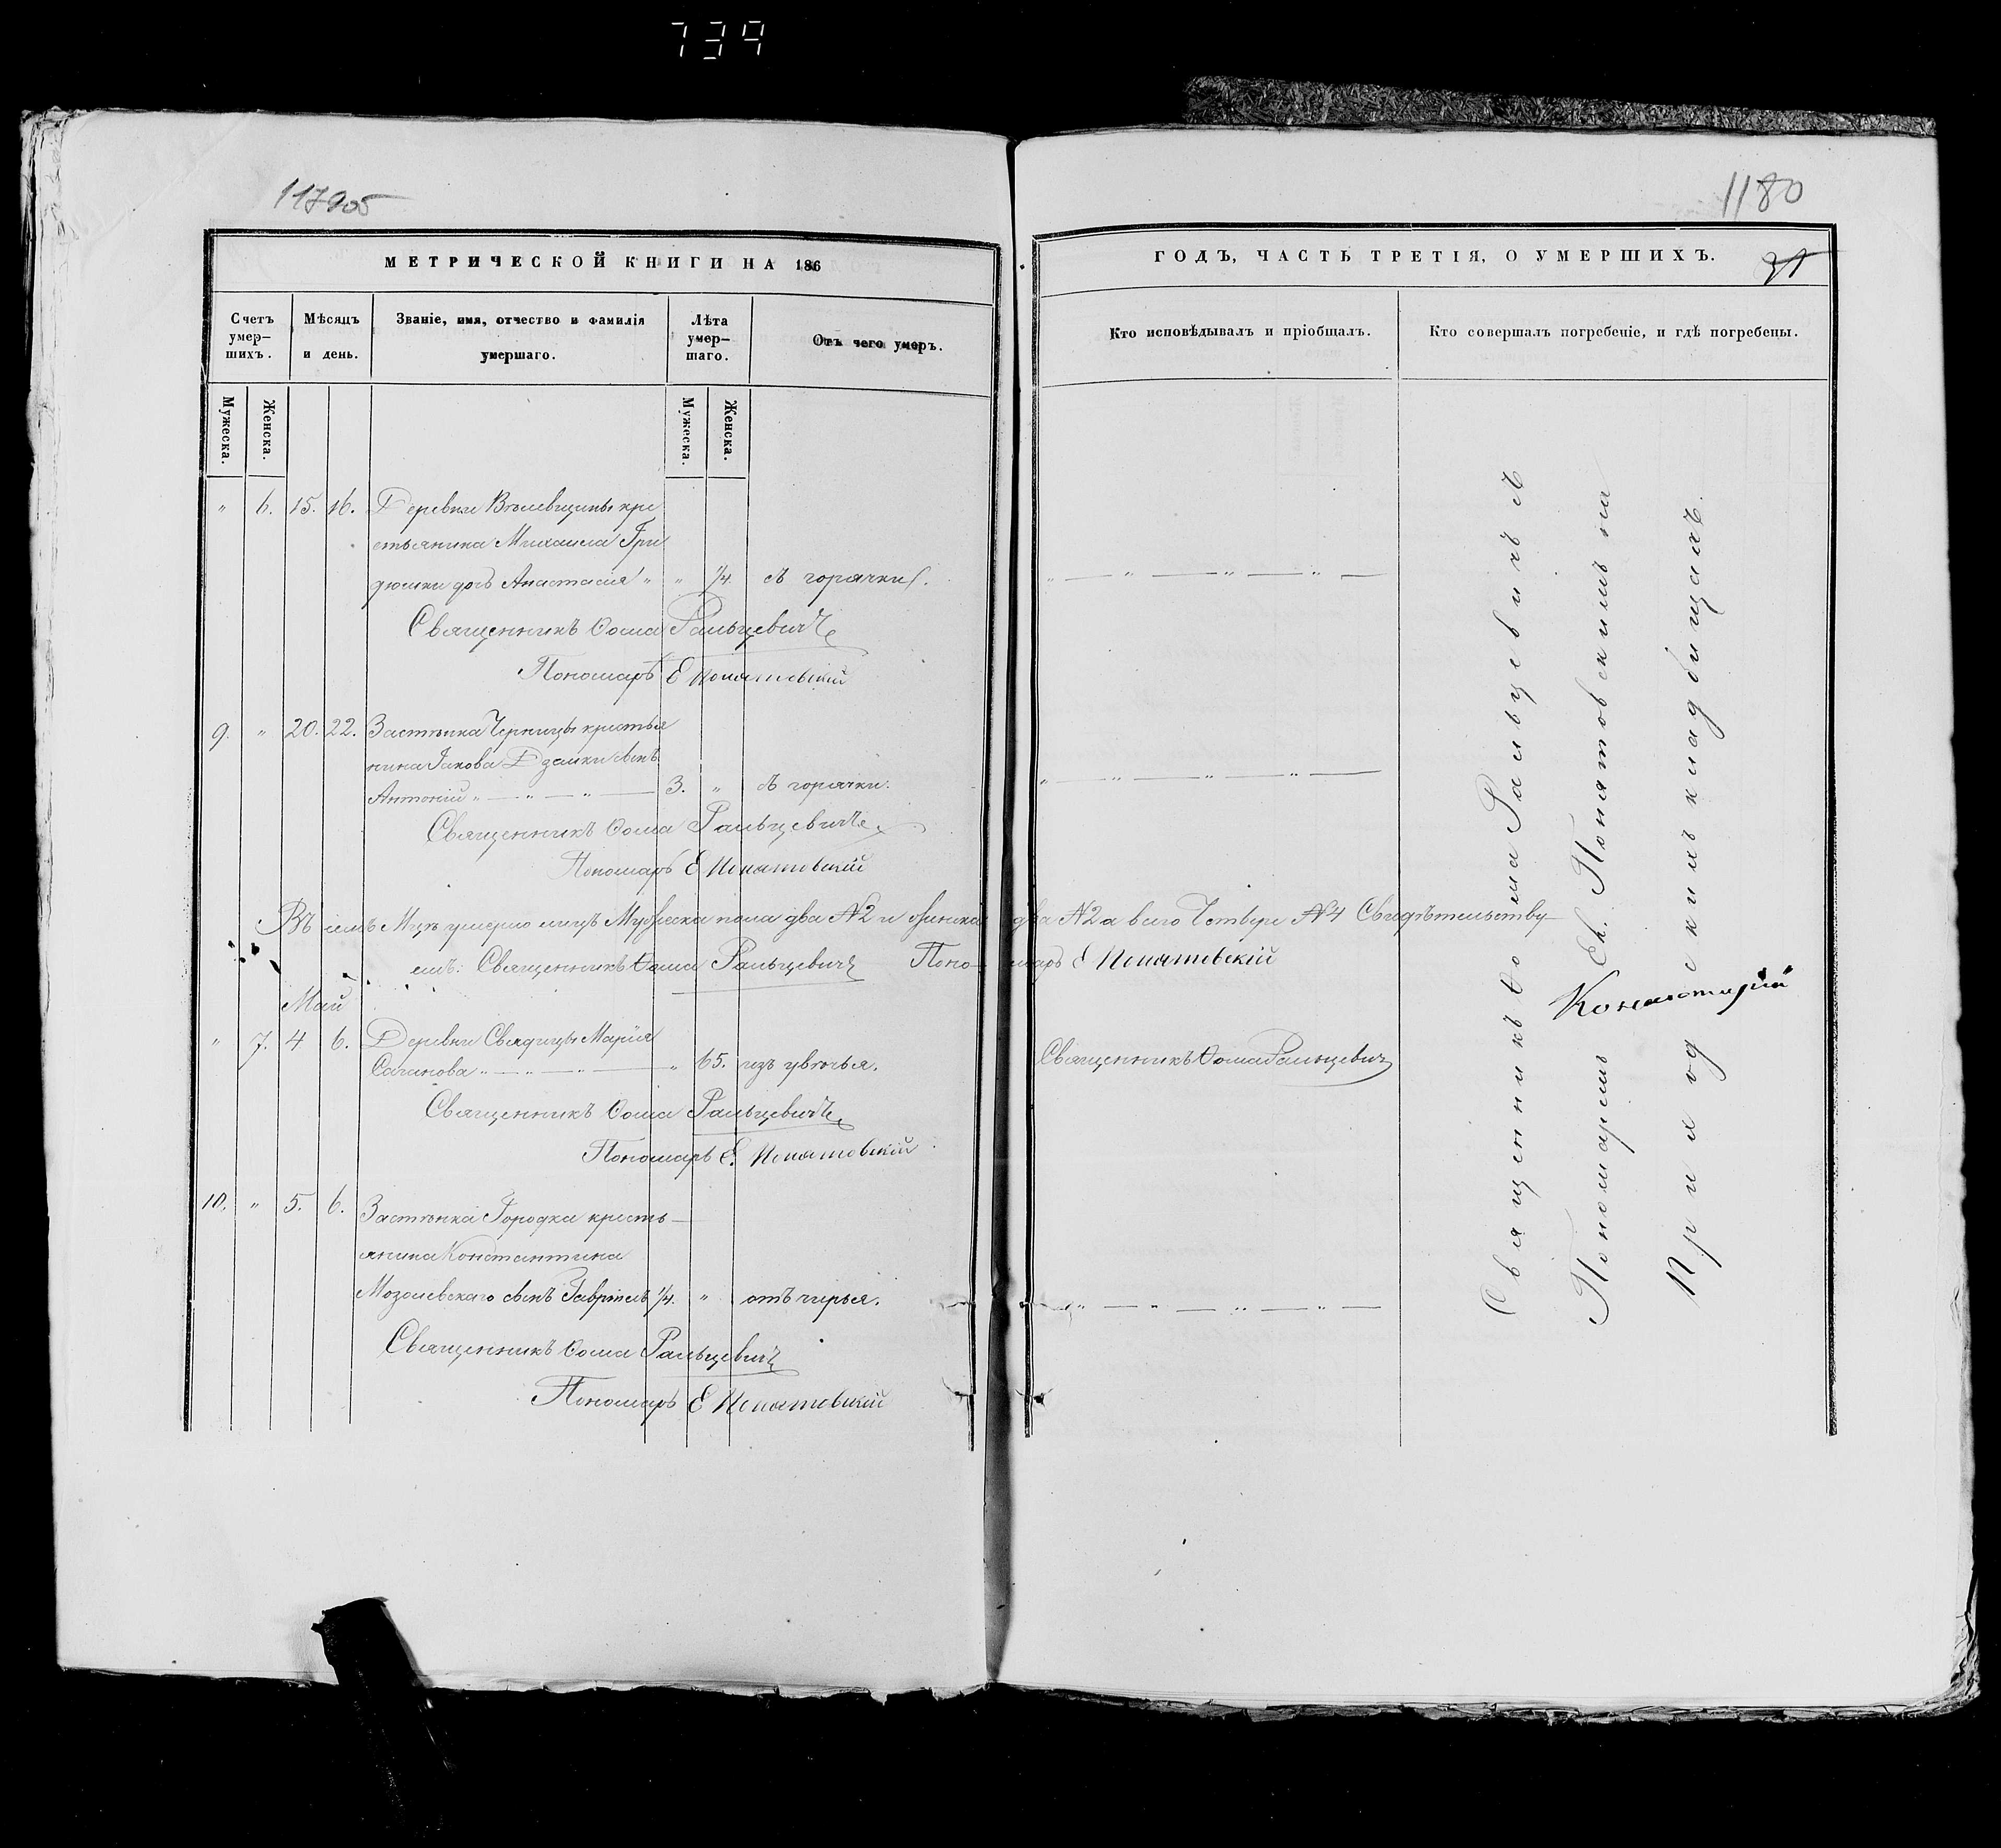 739
117905
1180
МЕТРИЧЕСКОЙ КНИГИ НА 186
ГОДЪ, ЧАСТЬ ТРЕТІЯ, О УМЕРШИХЪ.
31
Счетъ умер-шихъ.
Мѣсяцъ и день.
Званіе, имя, отчество и фамилія умершаго.
Лѣта умер-шаго.
Отъ чего умеръ.
Кто исповѣдывалъ и пріобщалъ.
Кто совершалъ погребеніе, и гдѣ погребены.
Мужеска.
Женска.
Мужеска.
Женска.
" 6. 15. 16. Деревни кре
стьянина Михаила Гри
дюшки дочь Анастасія " " 1/4. съ горячки.
Священникъ Ѳома Ральцевичъ
Пономарь Е Понятовскій
9. " 20. 22. Застѣнка Черницы крестья
нина Іакова Дзайки сынъ
Антоній " — " — " — 3. " съ горячки.
Священникъ Ѳома Ральцевичъ
Пономарь Е Понятовскій
Въ семъ Мцѣ умерло лицъ Мужеска пола два №2 и Женска два №2 а всего Четыре №4 Свидѣтельству
емъ: Священникъ Ѳома Ральцевичъ Пономарь Е Понятовскій
Май
" 7. 4 6. Деревни Свядицы Марія
Саганова " — " — " — " 65. изъ увѣчья. Священникъ Ѳома Ральцевич
Священникъ Ѳома Ральцевичъ
Пономарь Е. Понятовскій
10. " 5. 6. Застѣнка Городка кресть-
янина Константина
Мозолевскаго сынъ Гавріилъ 1/4. " отъ чирья.
Священникъ Ѳома Ральцевичъ
Пономарь Е Понятовскій
Священникъ Ѳома Ральцевичъ съ
Пономаремъ Ев. Понятовскимъ на
Приходскихъ кладбищахъ.